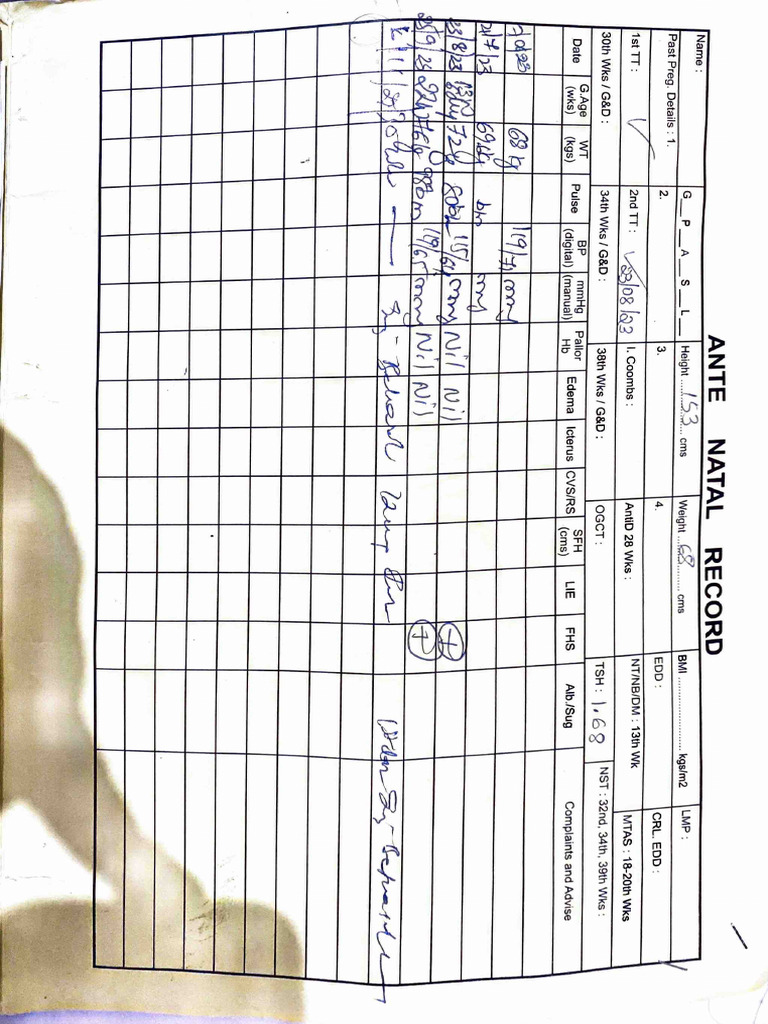 ANTE NATAL RECORD
Name : G__ P__ A__ S__ L__ Height ...153... cms Weight ...68... cms BMI .................. kgs/m2 LMP :
Past Preg. Details : 1. 2. 3. 4. EDD : CRL. EDD :
1st TT : ✓ 2nd TT : ✓ 23/08/23 I. Coombs : AntiD 28 Wks : NT/NB/DM : 13th Wk MTAS : 18-20th Wks
30th Wks / G&D : 34th Wks / G&D : 38th Wks / G&D : OGCT : TSH : 1.68 NST : 32nd, 34th, 39th Wks :
Date G.Age (wks) WT (kgs) Pulse BP (digital) mmHg (manual) Pallor Hb Edema Icterus CVS/RS SFH (cms) LIE FHS Alb./Sug Complaints and Advise
68 kg 119/71 mmg
21/7/23 69 kg bm mmg
23/8/23 72 kg 115/64 mmg Nil Nil +
25/9/23 76 kg 119/65 mmg Nil Nil +